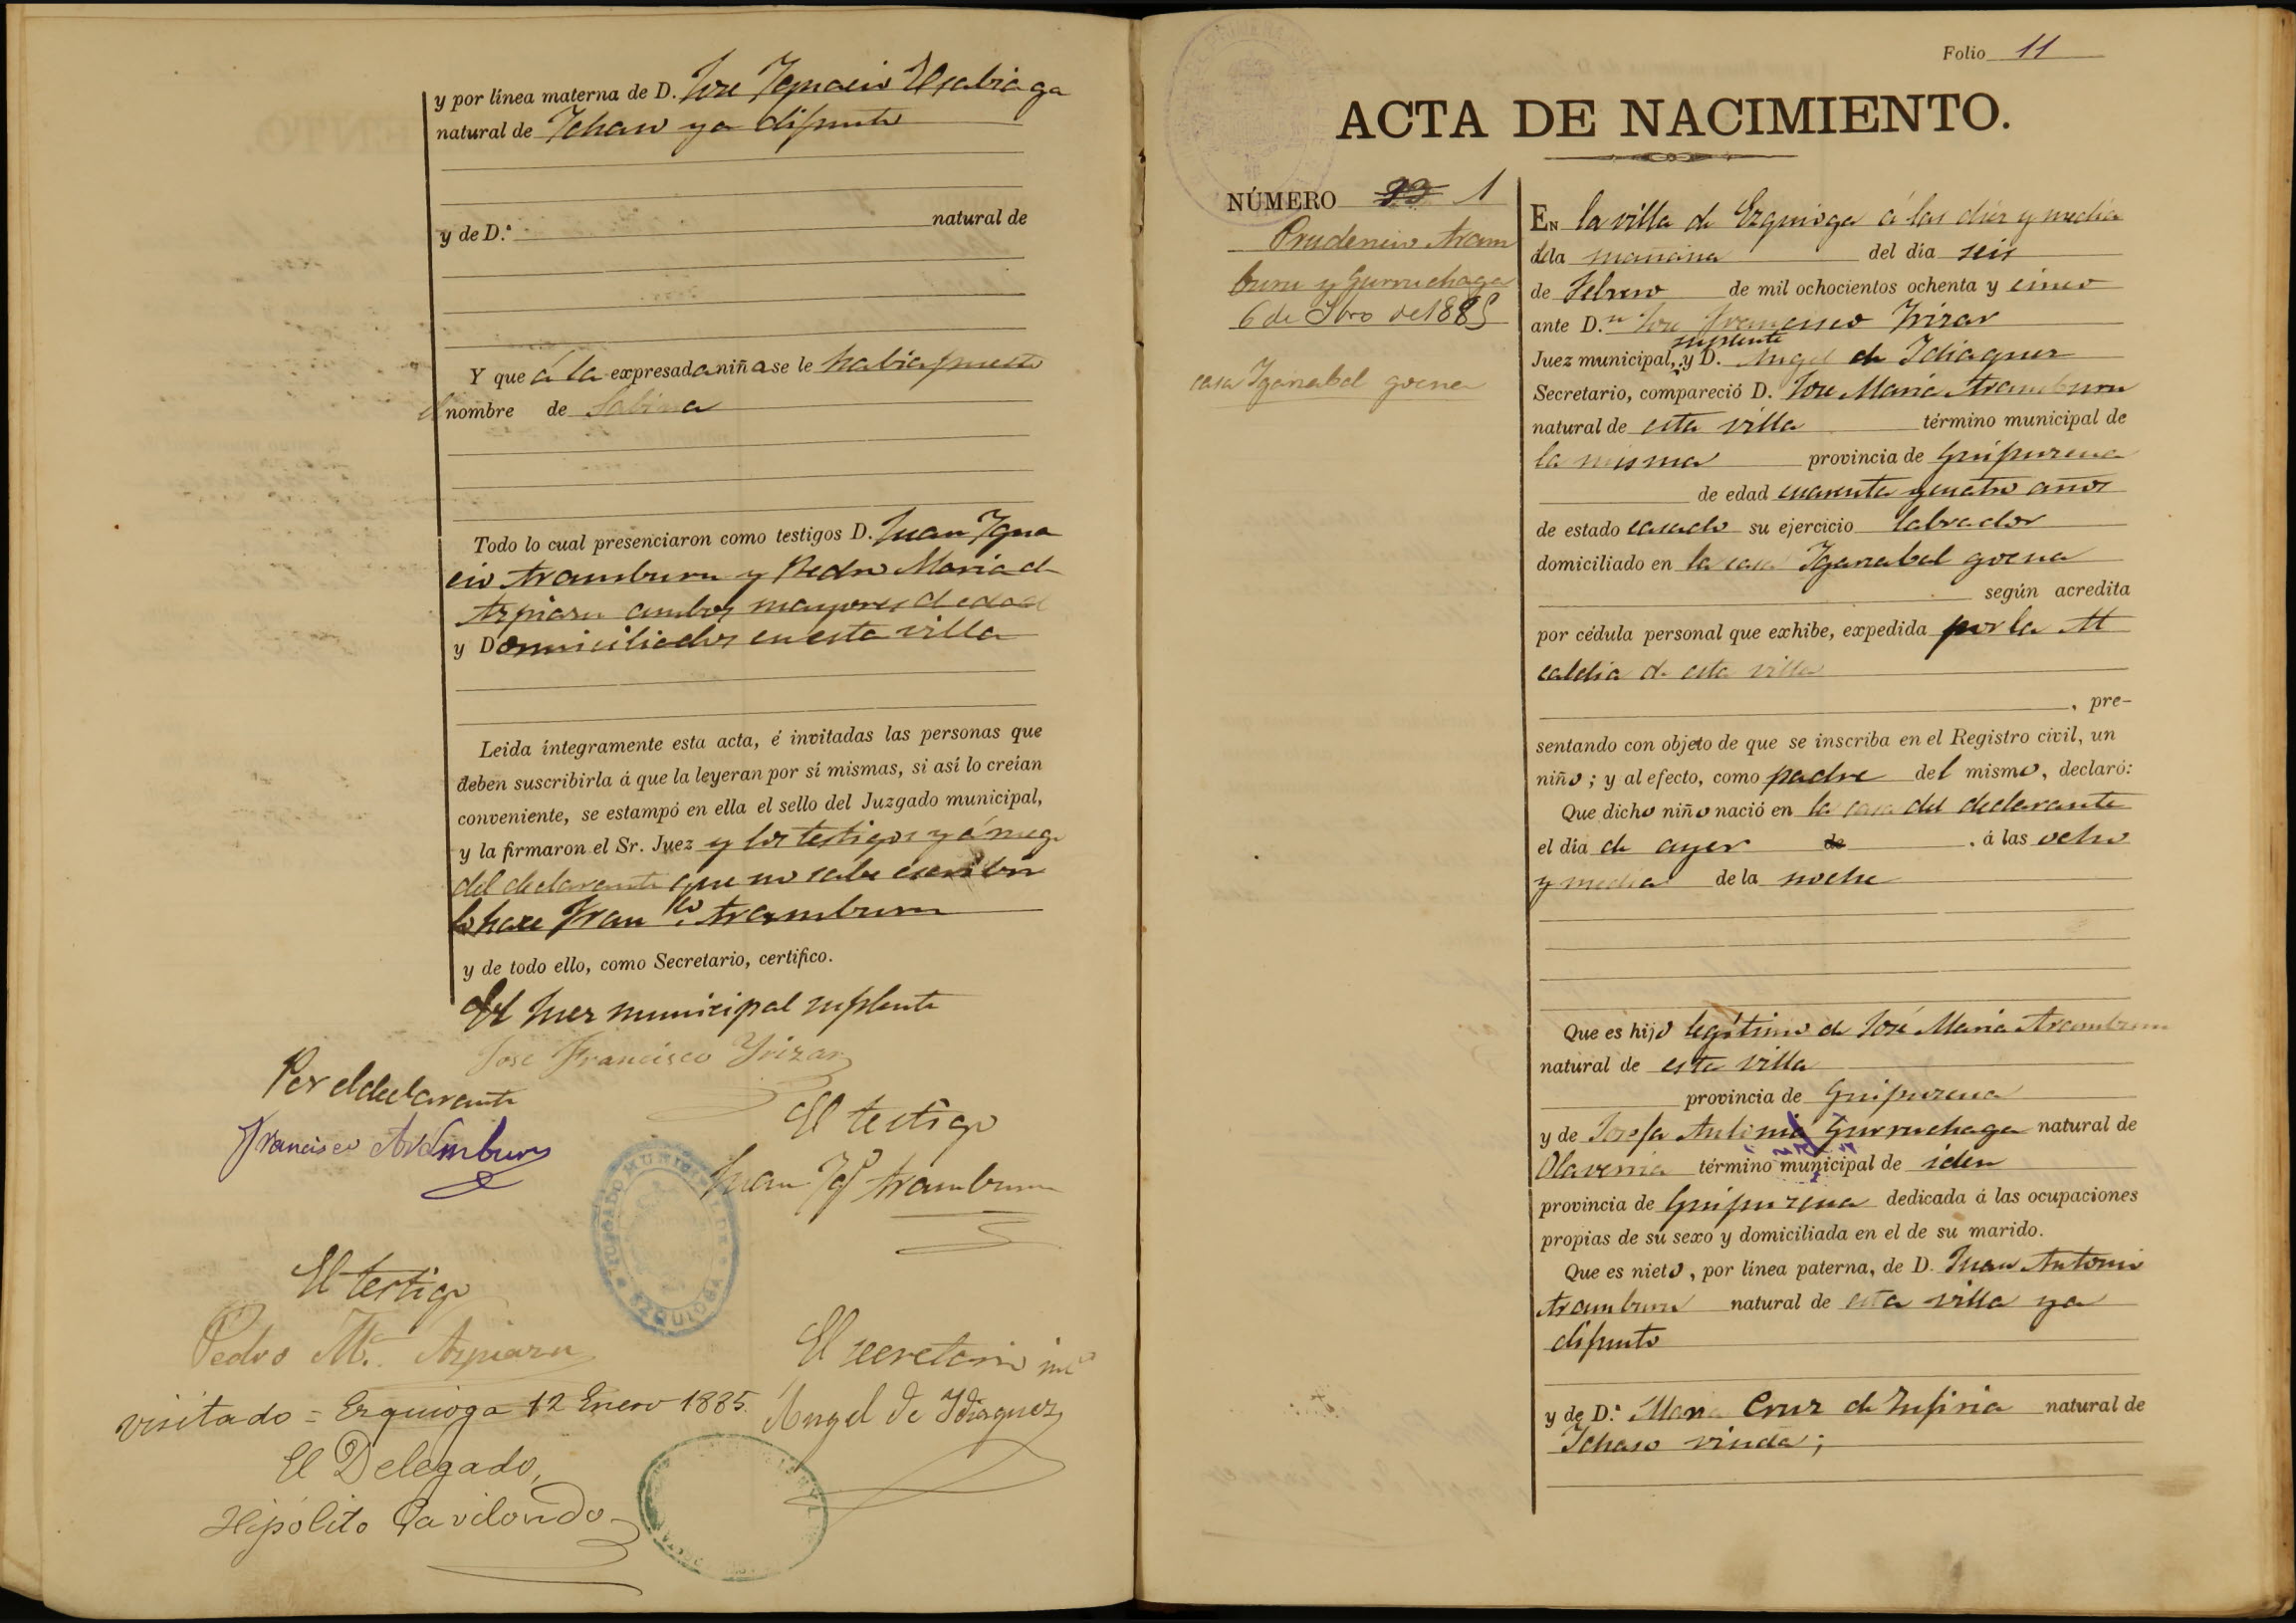 y por línea materna de D. Jose Ygnacio Usabiaga
natural de Ichaso ya difunto
y de D.ª natural de
Y que á la expresada niña se le habia puesto
el nombre de Sabina
Todo lo cual presenciaron como testigos D. Juan Ygna
cio Aramburu y Pedro Maria de
Azpiazu ambos mayores de edad
y Domiciliados en esta villa
Leida íntegramente esta acta, é invitadas las personas que
deben suscribirla á que la leyeran por sí mismas, si así lo creían
conveniente, se estampó en ella el sello del Juzgado municipal,
y la firmaron el Sr. Juez y los testigos y á ruego
del declarante que no sabe escribir
lo hace Fran.co Aramburu
y de todo ello, como Secretario, certifico.
El Juez municipal suplente
Jose Francisco Yrizar
Por el declarante
Francisco Aramburu
El testigo
Juan Yg.º Aramburu
JUZGADO MUNICIPAL DE EZQUIOGA
El testigo
Pedro M.ª Azpiazu
El secretario int.º
Angel de Ydiaquez
visitado = Ezquioga 12 Enero 1885.
El Delegado,
Hipólito Gavilondo
Folio 11
ACTA DE NACIMIENTO.
NÚMERO 1
Prudencio Aram
buru y Gurruchaga
6 de Fbro de 1885
casa Yganabal goena
EN la villa de Ezquioga á las diez y media
de la mañana del día seis
de Febrero de mil ochocientos ochenta y cinco
ante D.n Jose Francisco Yrizar
suplente
Juez municipal, y D. Angel de Ydiaquez
Secretario, compareció D. Jose Maria Aramburu
natural de esta villa término municipal de
la misma provincia de Guipuzcoa
de edad cuarenta y cuatro años
de estado casado su ejercicio labrador
domiciliado en la casa Yganabal goena
según acredita
por cédula personal que exhibe, expedida por la Al
caldia de esta villa
, pre-
sentando con objeto de que se inscriba en el Registro civil, un
niño; y al efecto, como padre del mismo, declaró:
Que dicho niño nació en la casa del declarante
el día de ayer de . á las ocho
y media de la noche
Que es hijo legítimo de José Maria Aramburu
natural de esta villa
provincia de Guipuzcoa
y de Josefa Antonia Gurruchaga natural de
Olaverria término municipal de iden
provincia de Guipuzcoa dedicada á las ocupaciones
propias de su sexo y domiciliada en el de su marido.
Que es nieto, por línea paterna, de D. Juan Antonio
Aramburu natural de esta villa ya
difunto
y de D.ª Maria Cruz de Zufiria natural de
Ichaso viuda;